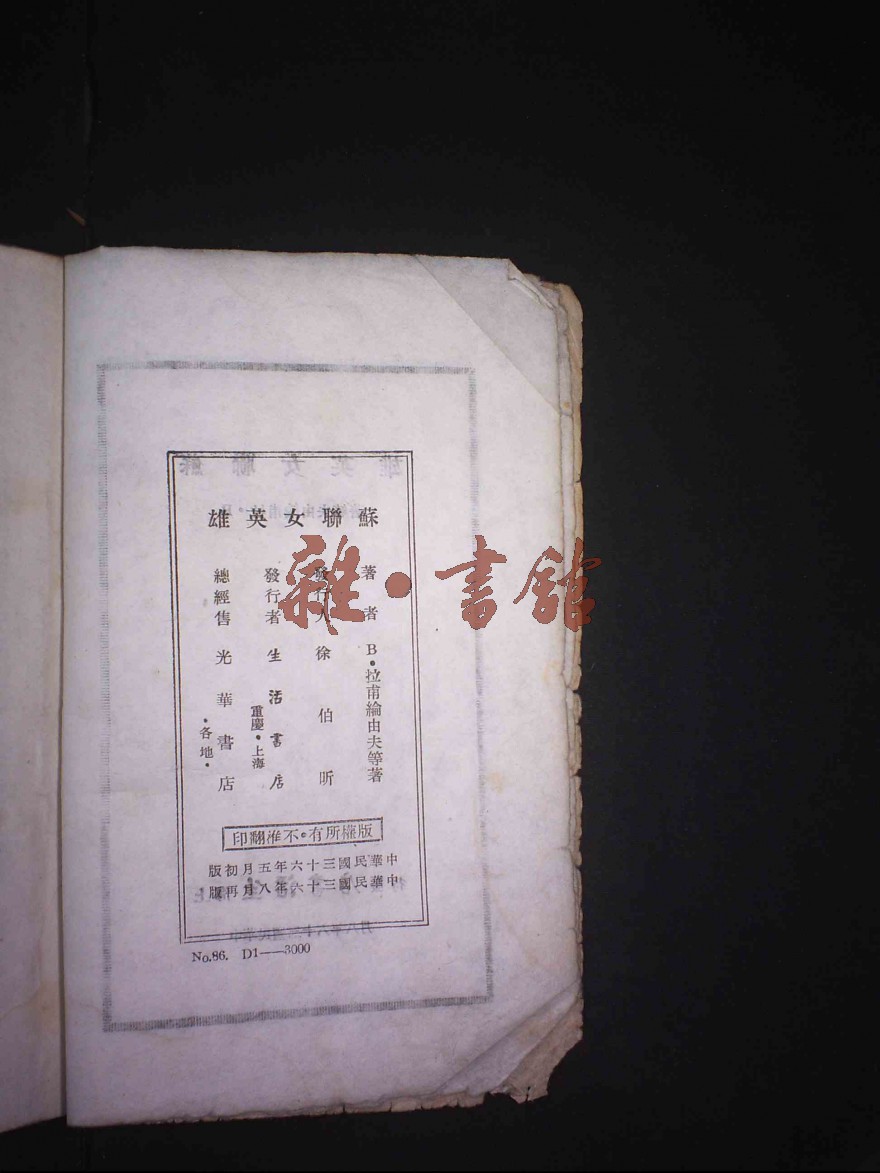 蘇聯女英雄
著者 B·拉甫綸由夫等著
發行人 徐伯昕
發行者 生活書店
重慶·上海
總經售 光華書店
·各地·
版權所有·不准翻印
中華民國三十六年五月初版
中華民國三十六年八月再版
No.86. D1——3000
雜·書館